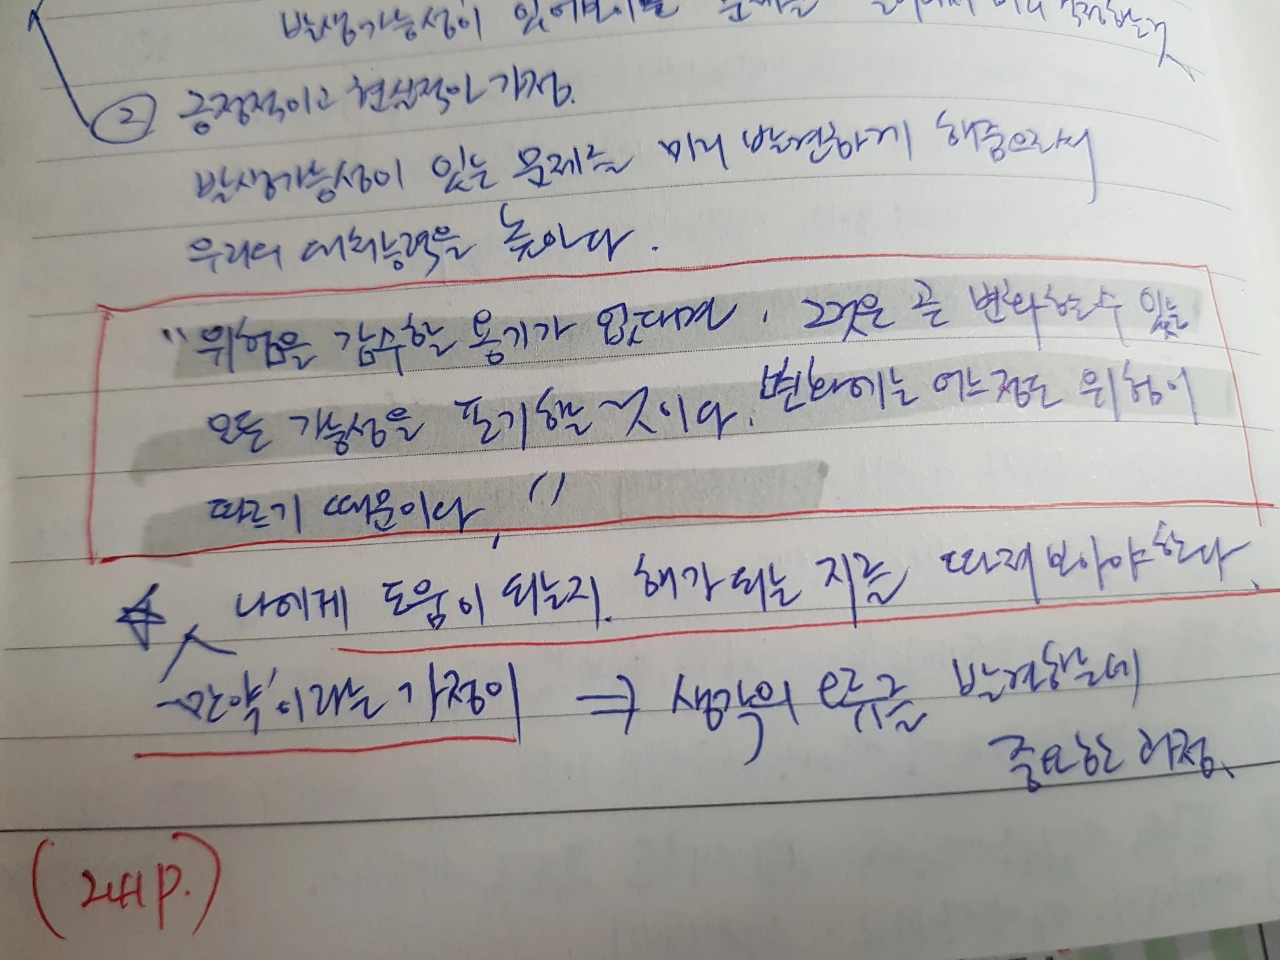 발생가능성이 있어보이는 문제를 미리
② 긍정적이고 현실적인 가정.
발생가능성이 있는 문제를 미리 발견하게 해줌으로서
우리의 대처능력을 높인다.
"위험을 감수할 용기가 없다면, 그것은 곧 변화할 수 있는
모든 가능성을 포기하는 것이다. 변화에는 어느정도 위험이
따르기 때문이다."
☆ 나에게 도움이 되는지. 해가 되는 지를 따져 보아야 한다.
'만약'이라는 가정이 ⇒ 생각의 오류를 발견하는데
중요한 과정.